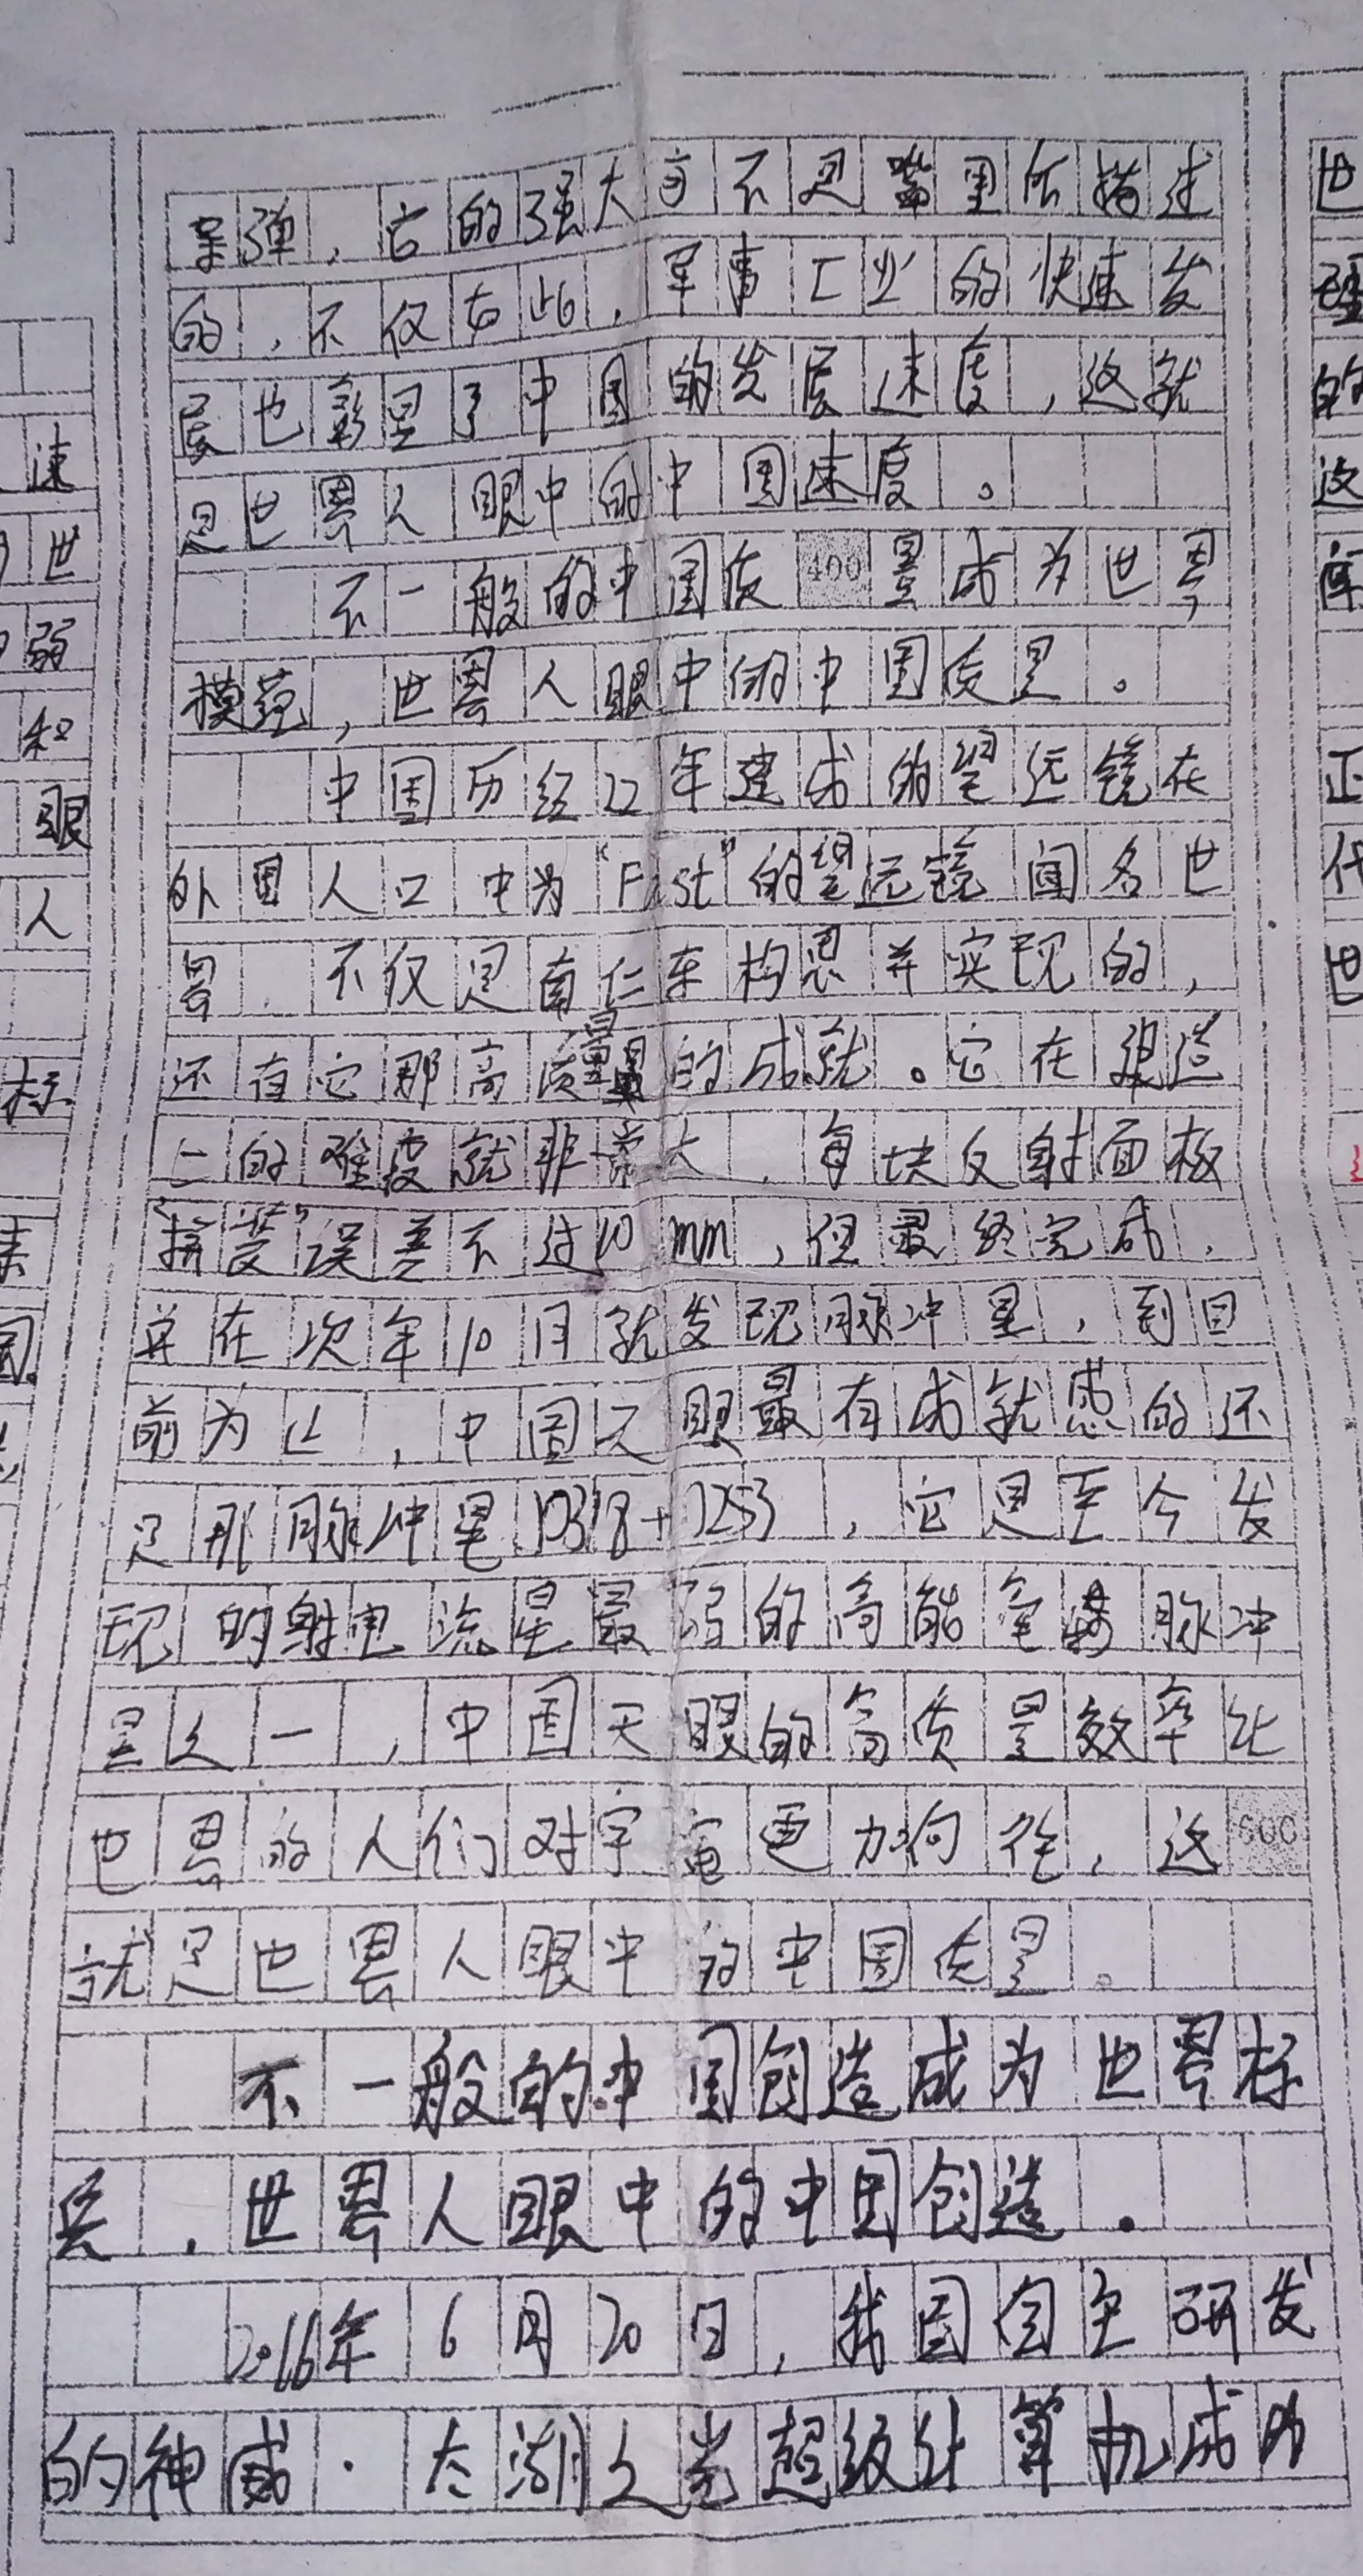 导弹，它的强大言不是嘴里所描述
的，不仅如此，军事工业的快速发
展也彰显了中国的发展速度，这就
是世界人眼中的中国速度。
不一般的中国质400量成为世界
模范，世界人眼中的中国质量。
中国历经22年建成的望远镜在
外国人口中为“Fast”的望远镜闻名世
界，不仅是南仁东构思并实现的，
还有它那高质量的成就。它在建造
上的难度就非常大，每块反射面板
“拼接”误差不过10mm，但最终完成，
并在次年10月就发现脉冲星，到目
前为止，中国天眼最有成就感的还
是那脉冲星J0318+0253，它是至今发
现的射电流星最弱的高能毫秒脉冲
星之一，中国天眼的高质量效率让
世界的人们对宇宙更加向往，这600
就是世界人眼中的中国质量。
不一般的中国创造成为世界标
兵，世界人眼中的中国创造。
2016年6月20日，我国自主研发
的神威·太湖之光超级计算机成为
速
世
弱
和
眼
人
标
国。
世
理
的
这
闻
正
代
世